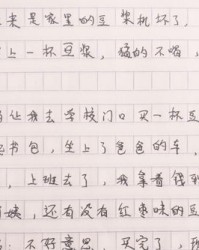 来是家里的豆浆机坏了,
上一杯豆浆,猛的不喝,
让我去学校门口买一杯豆
书包,坐上了爸爸的车,
,上班去了,我拿着得到
姨,还有没有红枣味的豆
:不好意思,买完了,